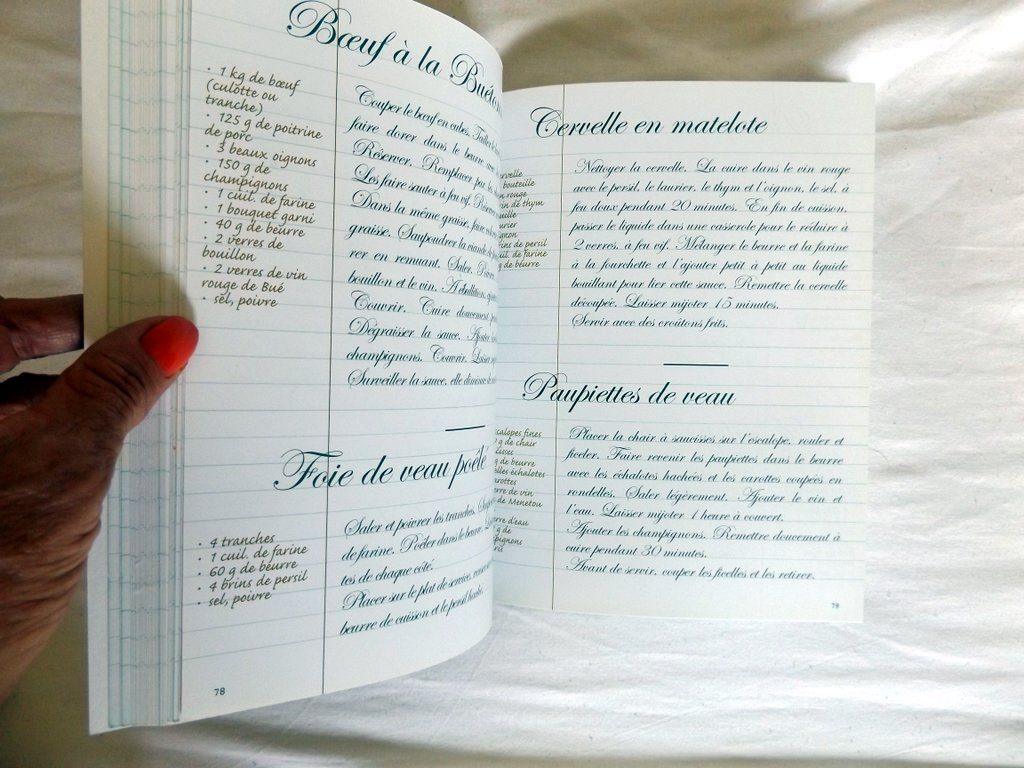 Bœuf à la
· 1 kg de bœuf
(culotte ou
tranche)
· 125 g de poitrine
de porc
· 3 beaux oignons
· 150 g de
champignons
· 1 cuil. de farine
· 1 bouquet garni
· 40 g de beurre
· 2 verres de
bouillon
· 2 verres de vin
rouge de Bué
· sel, poivre
Couper le bœuf en cubes.
faire dorer dans le beurre
Réserver. Remplacer par les
Les faire sauter à feu vif.
Dans la même graisse, faire
graisse. Saupoudrer la viande de
rer en remuant. Saler.
bouillon et le vin. A ébullition,
Couvrir. Cuire doucement
Dégraisser la sauce. Ajouter
champignons. Couvrir. Laisser
Surveiller la sauce, elle diminue
Foie de veau poêlé
· 4 tranches
· 1 cuil. de farine
· 60 g de beurre
· 4 brins de persil
· sel, poivre
Saler et poivrer les tranches.
de farine. Poêler dans le beurre.
tes de chaque côté.
Placer sur le plat de service,
beurre de cuisson et le persil haché.
78
Cervelle en matelote
bouteille
rouge
de thym
persil
de farine
de beurre
Nettoyer la cervelle. La cuire dans le vin rouge
avec le persil, le laurier, le thym et l'oignon, le sel, à
feu doux pendant 20 minutes. En fin de cuisson,
passer le liquide dans une casserole pour le réduire à
2 verres, à feu vif. Mélanger le beurre et la farine
à la fourchette et l'ajouter petit à petit au liquide
bouillant pour lier cette sauce. Remettre la cervelle
découpée. Laisser mijoter 15 minutes.
Servir avec des croûtons frits.
Paupiettes de veau
fines
g de chair
g de beurre
échalotes
de vin
de Menetou
d'eau
g de
Placer la chair à saucisses sur l'escalope, rouler et
ficeler. Faire revenir les paupiettes dans le beurre
avec les échalotes hachées et les carottes coupées en
rondelles. Saler légèrement. Ajouter le vin et
l'eau. Laisser mijoter 1 heure à couvert.
Ajouter les champignons. Remettre doucement à
cuire pendant 30 minutes.
Avant de servir, couper les ficelles et les retirer.
79